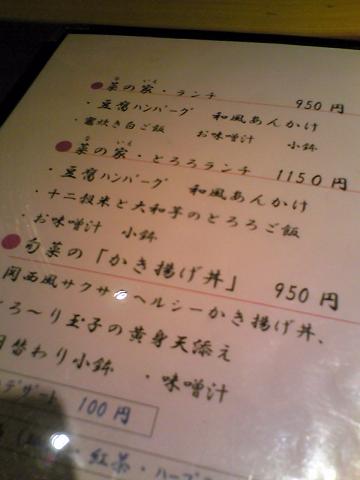 ●菜の家・ランチ 950円
・豆腐ハンバーグ 和風あんかけ
・竃炊き白ご飯 お味噌汁 小鉢
●菜の家・とろろランチ 1150円
・豆腐ハンバーグ 和風あんかけ
・十二穀米と大和芋のとろろご飯
・お味噌汁 小鉢
●旬菜の「かき揚げ丼」 950円
関西風サクサク ヘルシーかき揚げ丼、
とろ～り玉子の黄身天添え
日替わり小鉢 ・味噌汁
デザート 100円
・紅茶・ハーブ